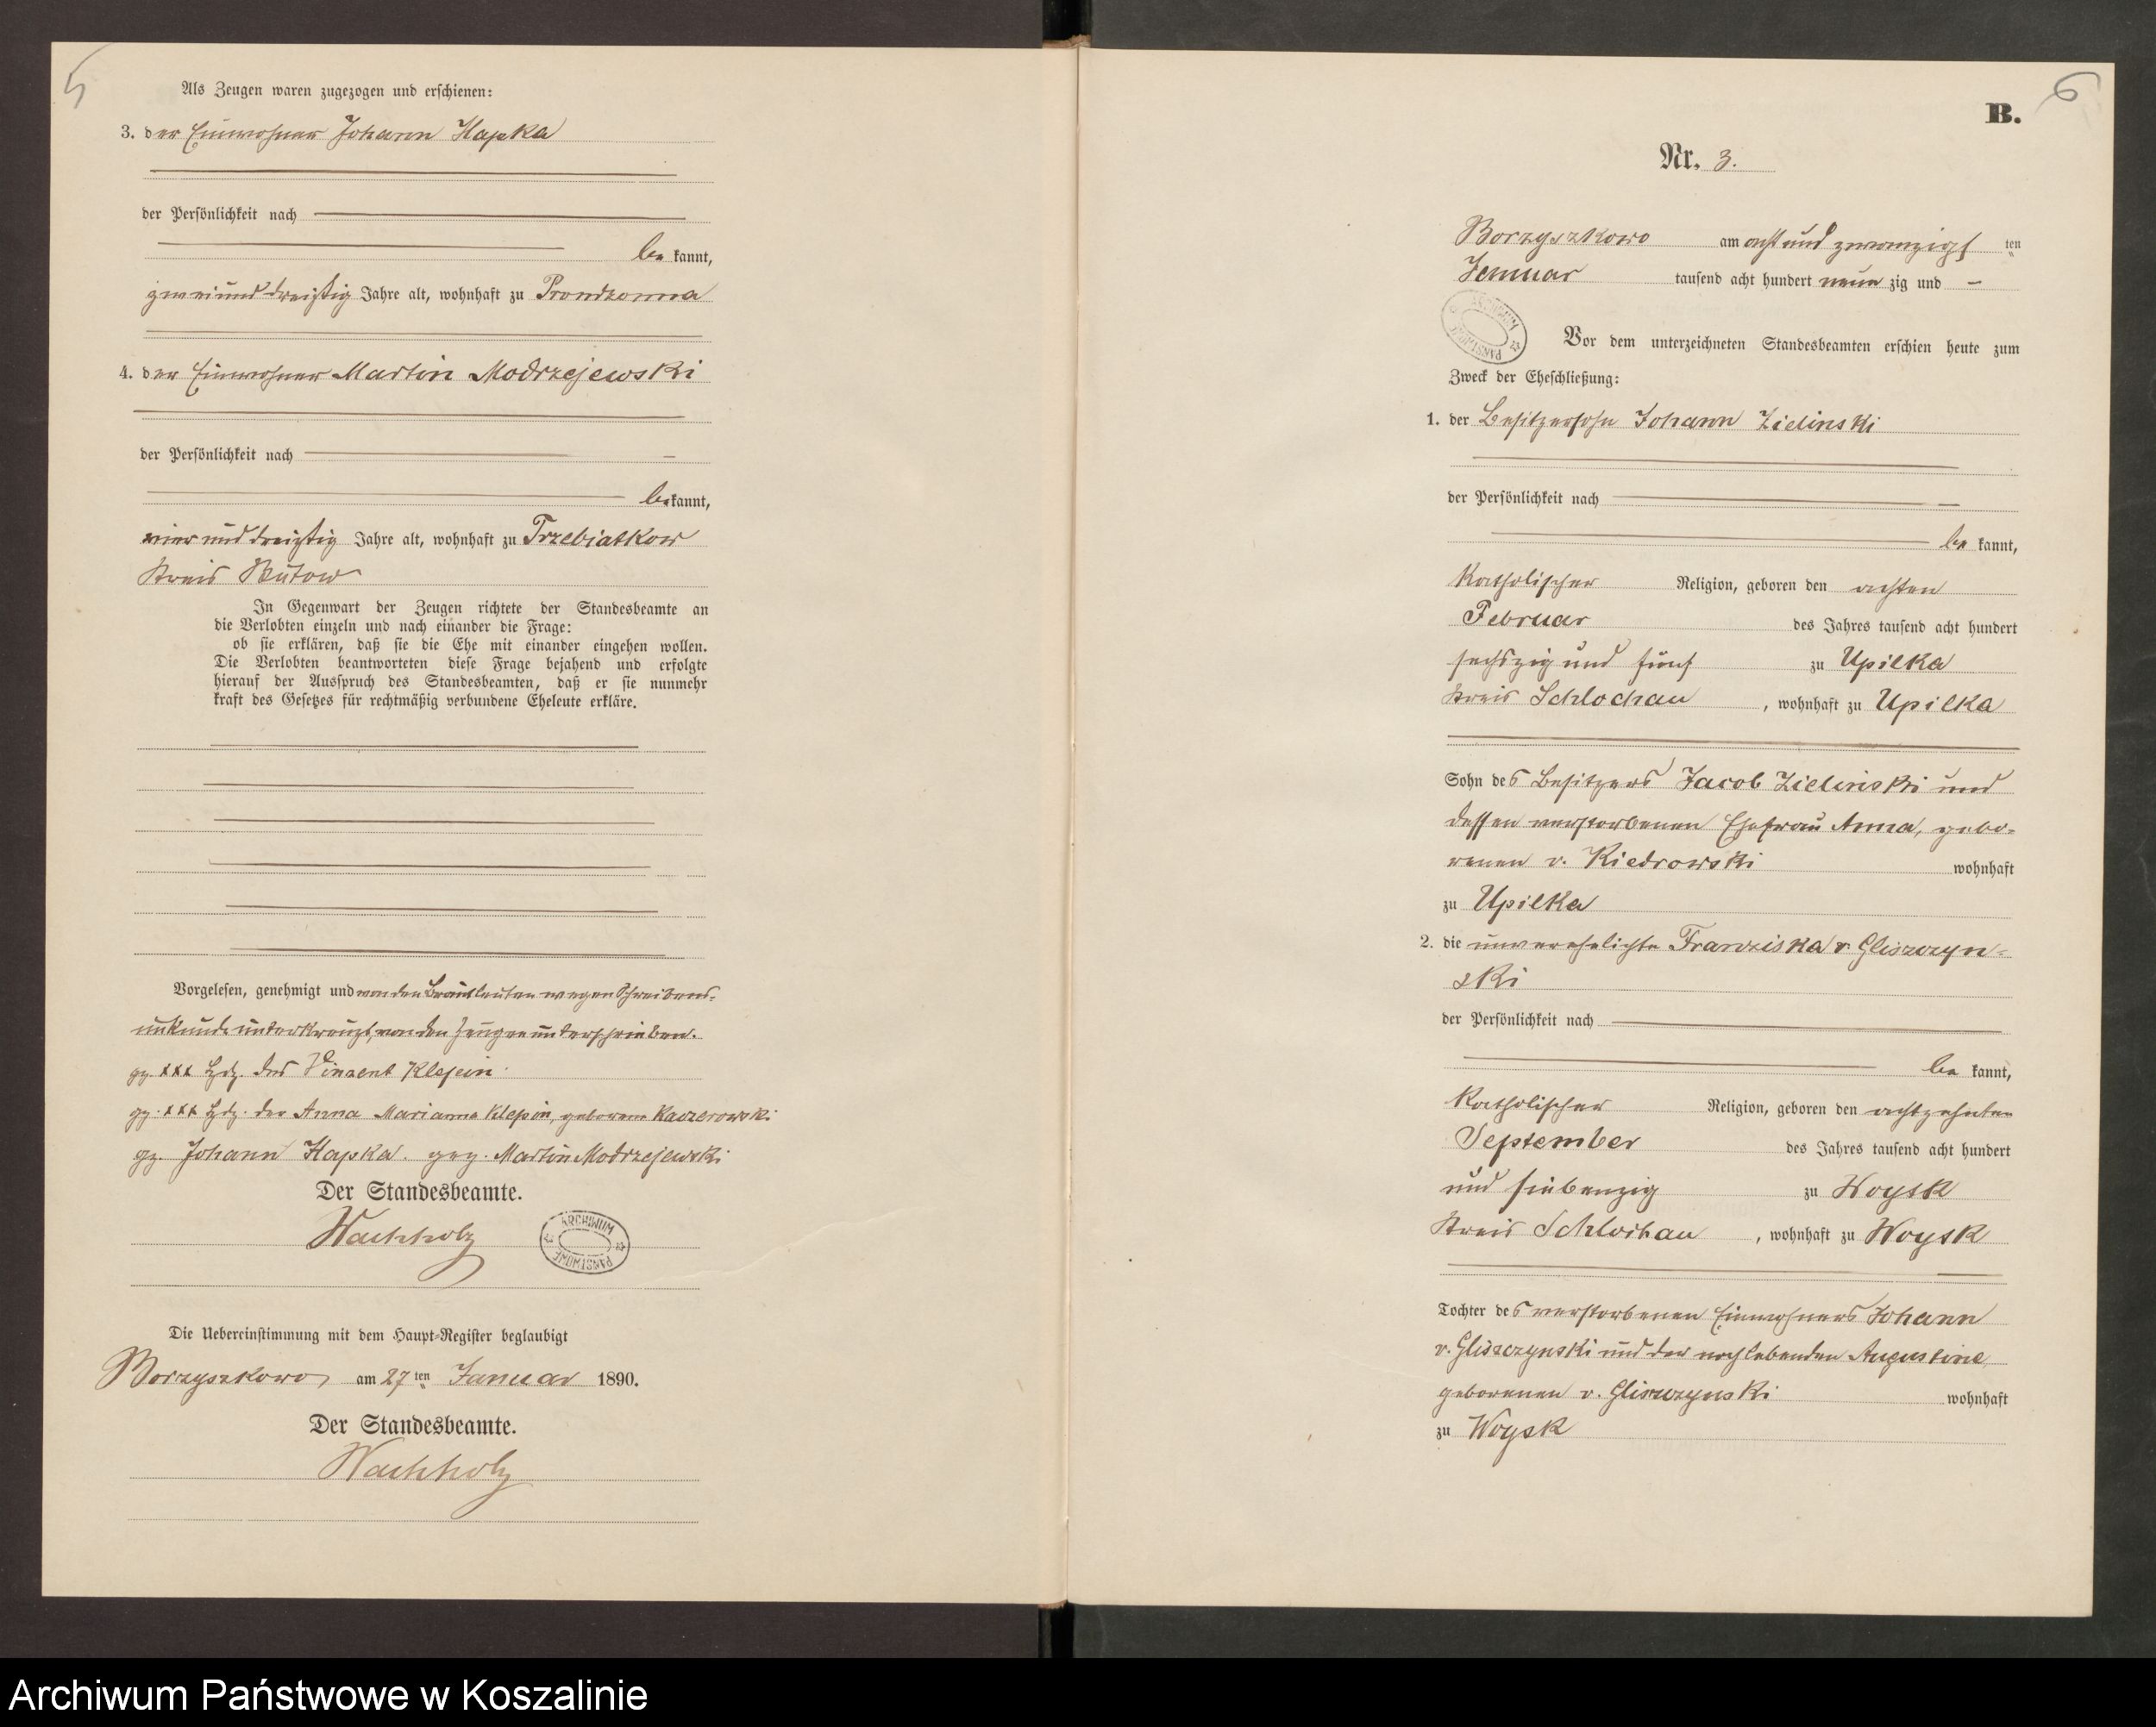 5
Als Zeugen waren zugezogen und erschienen:
3. der Einwohner Johann Hapka
der Persönlichkeit nach
be kannt,
zweiund dreißig Jahre alt, wohnhaft zu Prondzonna
4. der Einwohner Martin Modrzejewski
der Persönlichkeit nach
bekannt,
vier und dreißig Jahre alt, wohnhaft zu Trzebiatkow
Kreis Bütow
In Gegenwart der Zeugen richtete der Standesbeamte an
die Verlobten einzeln und nach einander die Frage:
ob sie erklären, daß sie die Ehe mit einander eingehen wollen.
Die Verlobten beantworteten diese Frage bejahend und erfolgte
hierauf der Ausspruch des Standesbeamten, daß er sie nunmehr
kraft des Gesetzes für rechtmäßig verbundene Eheleute erkläre.
Vorgelesen, genehmigt und von den Brautleuten wegen Schreibens-
unkunde unterkreuzt, von den Zeugen unterschrieben.
gz. xxx Hdz. des Vinzent Klepin
gz. xxx Hdz. der Anna Marianna Klepin, geborene Kaczerowski
gz. Johann Hapka. gez. Martin Modrzejewski
Der Standesbeamte.
Wachholz
ARCHIWUM
PAŃSTWOWE
Die Uebereinstimmung mit dem Haupt-Register beglaubigt
Borzyszkowo am 27 ten Januar 1890.
Der Standesbeamte.
Wachholz
6
B.
Nr. 3.
Borzyszkowo am acht und zwanzigs ten
Januar tausend acht hundert neun zig und –
ARCHIWUM
PAŃSTWOWE
Vor dem unterzeichneten Standesbeamten erschien heute zum
Zweck der Eheschließung:
1. der Besitzersohn Johann Zielinski
der Persönlichkeit nach
be kannt,
katholischer Religion, geboren den achten
Februar des Jahres tausend acht hundert
sechszig und fünf zu Upilka
Kreis Schlochau, wohnhaft zu Upilka
Sohn des Besitzers Jacob Zielinski und
dessen verstorbenen Ehefrau Anna, gebo-
renen v. Kiedrowski wohnhaft
zu Upilka
2. die unverehelichte Franziska v. Gliszczyn-
ski
der Persönlichkeit nach
be kannt,
katholischer Religion, geboren den achtzehnten
September des Jahres tausend acht hundert
und siebenzig zu Woysk
Kreis Schlochau, wohnhaft zu Woysk
Tochter des verstorbenen Einwohners Johann
v. Gliszczynski und der noch lebenden Augustine
geborenen v. Gliszczynski wohnhaft
zu Woysk
Archiwum Państwowe w Koszalinie